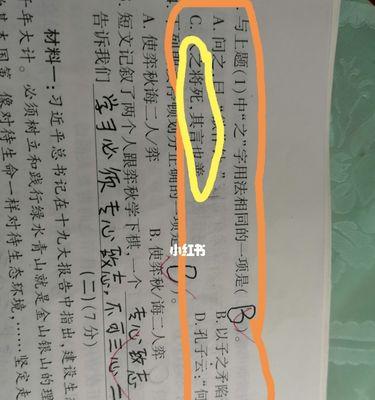 与上题(1)中“之”字用法相同的一项是(B)。
A. 问之
B. 以子之矛陷
C. 之将死,其言也善
D. 孔子云:“何
划分正确的一项是
A. 使弈秋诲二人/弈
B. 使弈秋/诲二人弈
短文记叙了两个人跟弈秋学下棋,一个 专心致志
告诉我们 学习必须专心致志,不可三心二
(二)(7分)
材料一:习近平总书记在十九大报告中指出,建设生
年大计。必须树立和践行绿水青山就是金山银山的理
本国策,像对待生命一样对待生态环境,……坚定走
小红书